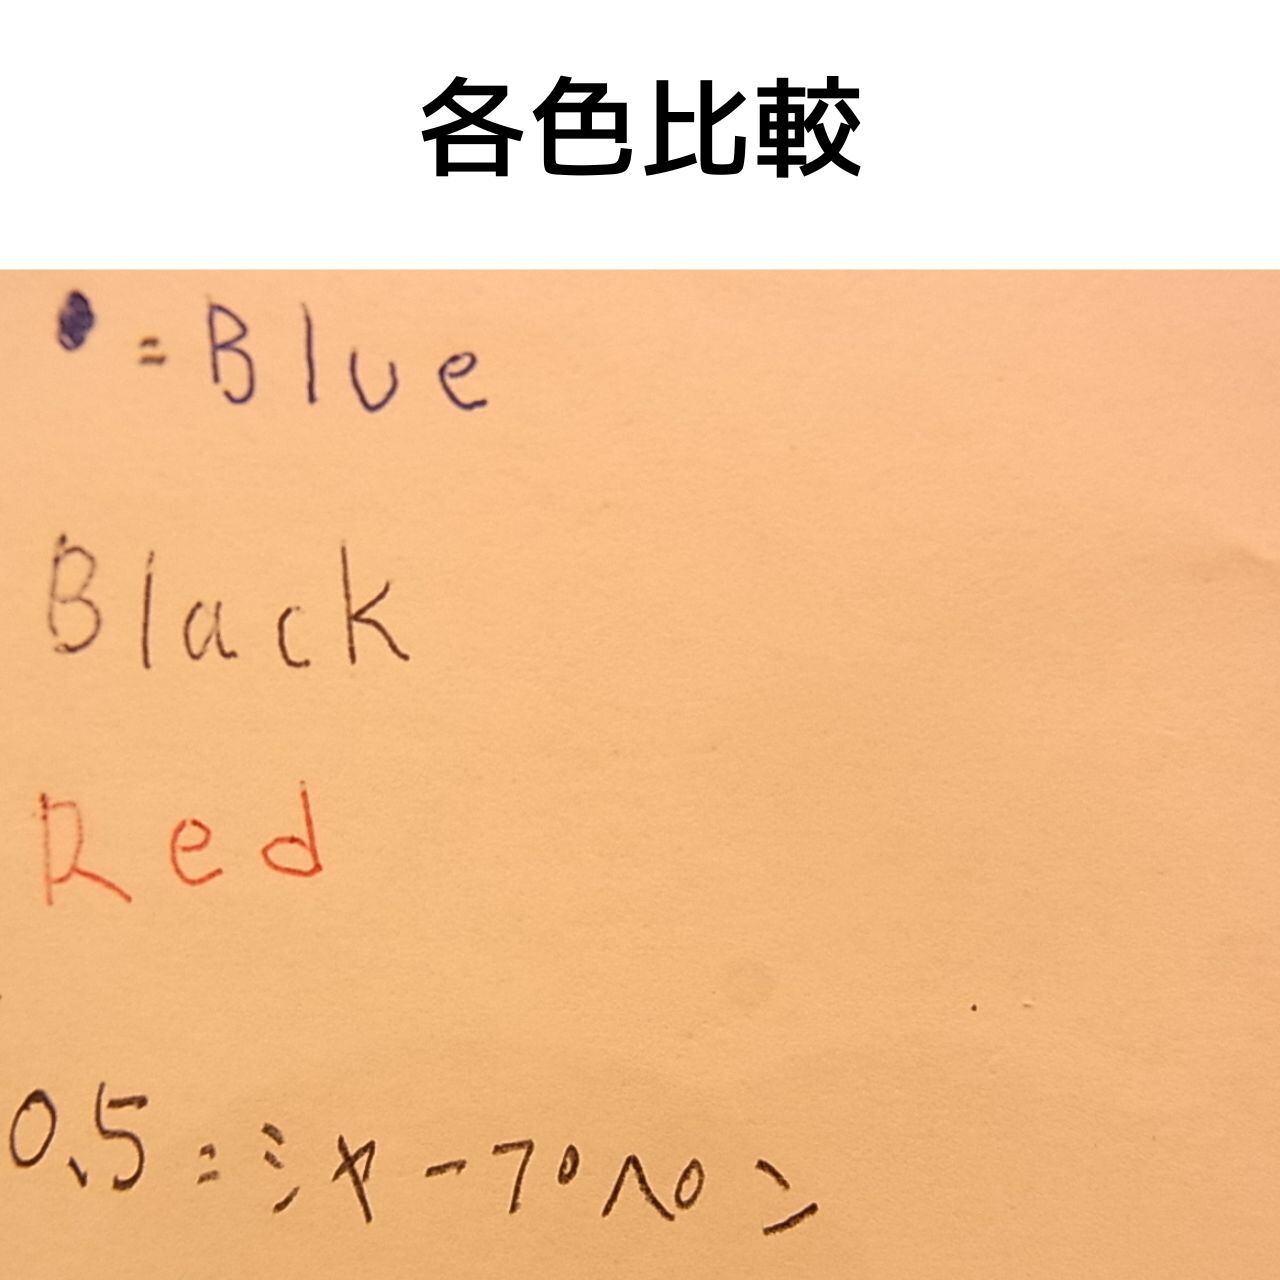 各色比較
= Blue
Black
Red
0.5=シャープペン